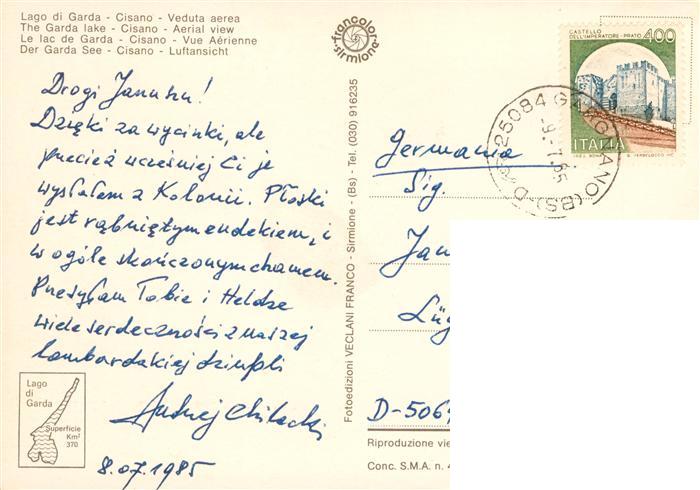 Lago di Garda - Cisano - Veduta aerea
The Garda lake - Cisano - Aerial view
Le lac de Garda - Cisano - Vue Aérienne
Der Garda See - Cisano - Luftansicht
francolor
sirmione
Drogi Januszu!
Dzięki za wycinki, ale
przecież wcześniej Ci je
wysłałem z Kolonii. Płoski
jest rąbniętym endekiem, i
w ogóle skończonym chamem.
Przesyłam Tobie i Heldze
wiele serdeczności z naszej
lombardzkiej dziupli
Andrzej
8.07.1985
Lago
di
Garda
Superficie
Km²
370
Fotoedizioni VECLANI FRANCO - Sirmione - (Bs) - Tel. (030) 916235
CASTELLO
DELL'IMPERATORE - PRATO 400
ITALIA
25084 GARGNANO (BS)
-9.-7.85
Germania
Sig.
Jan
Lüg
D-506
Riproduzione vie
Conc. S.M.A. n. 4